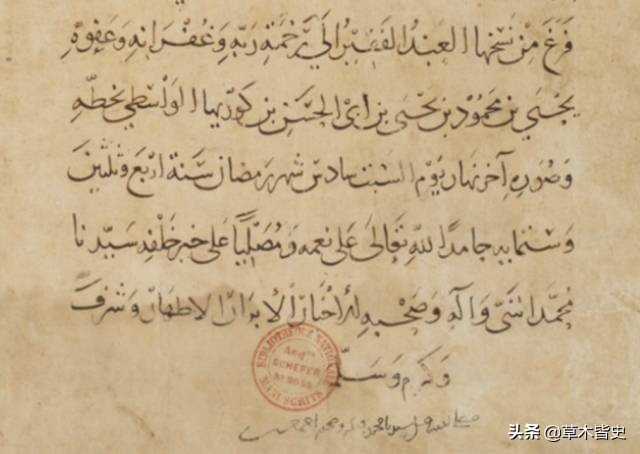 فرغ من نسخها العبد الفقير الى رحمة ربه وغفرانه وعفوه
يحيى بن محمود بن يحيى بن ابى الحسن بن كوريها الواسطي بخطه
وصوره آخر نهار يوم السبت سادس شهر رمضان سنة اربع وثلثين
وستمايه حامدا لله تعالى على نعمه ومصليا على خير خلقه سيدنا
محمد النبي وآله وصحبه الاخيار الابرار الاطهار وشرف
وكرم وسلم
SCHEFER
MANUSCRITS
头条 @草木皆史